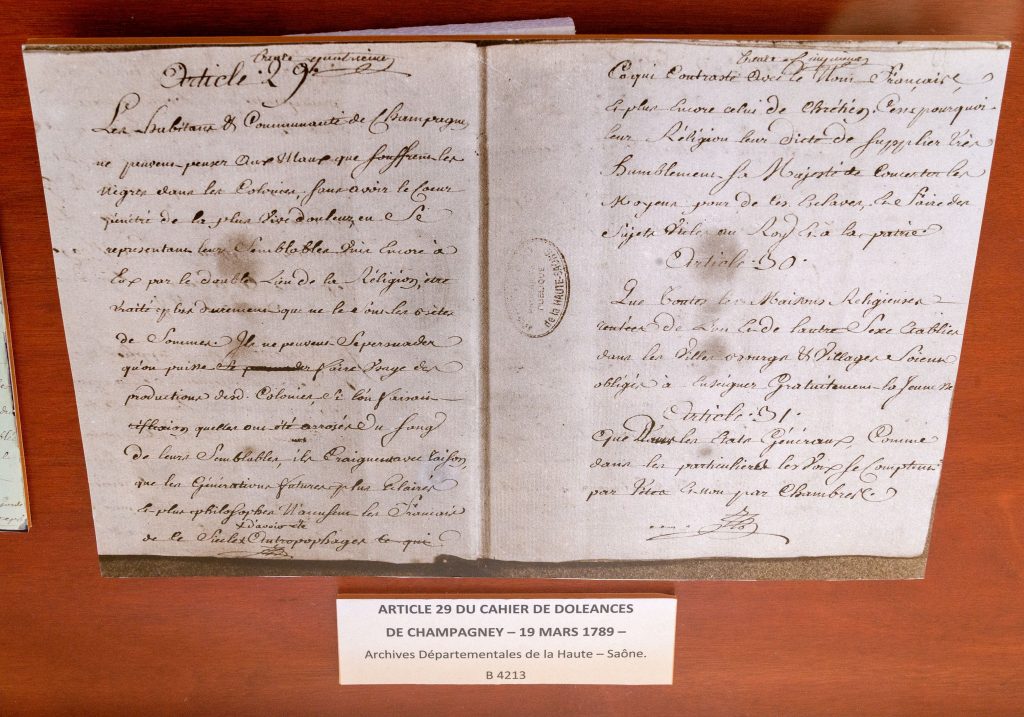 trente quatrieme
Article : 29.
Les Habitans & Communauté de Champagney
ne peuvent penser aux Maux que souffrent les
Nègres dans les Colonies, sans avoir le Coeur
pénétré de la plus Vive douleur, en Se
representant leurs Semblables, Unis Encore à
Eux par le double Lien de la Religion, être
traités plus durement que ne le sont les bêtes
de Sommes. Ils ne peuvent Se persuader
qu'on puisse faire Usage des
productions desd. Colonies, Si l'on faisait
réflexion quelles ont été arrosées du Sang
de leurs Semblables, ils Craignent avec raison,
que les Générations futures plus Eclairés
& plus philosophes N'accusent les Français
de ce Siecle d'avoir été Antropophages ce qui
trente cinquieme
Ce qui Contraste avec le Nom Français,
& plus Encore celui de Chrétien. C'est pourquoi
leur Réligion leur dicte de Supplier très
humblement Sa Majesté de Concerter les
Moyens, pour de ces Esclaves, En Faire des
Sujets Utiles au Roy & a la patrie
Article : 30.
Que Toutes les Maisons Religieuses
rentées de L'un & de l'autre Sexe établies
dans les Villes, bourgs & Villages, Soient
obligés à Enseigner Gratuitement la Jeunesse
Article : 31.
Que dans les Etats Généraux, Comme
dans les particuliers les Voix Se Comptent
par têtes & non par Chambres
PUBLIQUE
de la HAUTE-SAÔNE
ARTICLE 29 DU CAHIER DE DOLEANCES
DE CHAMPAGNEY – 19 MARS 1789 –
Archives Départementales de la Haute – Saône.
B 4213